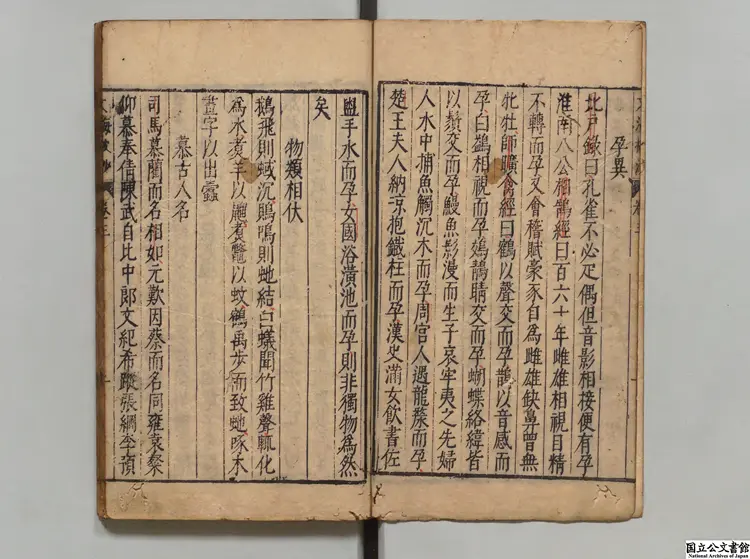 孕異
北戶錄曰孔雀不必疋偶但音影相接便有孕
淮南八公相鵠經曰百六十年雌雄相視目精
不轉而孕又會稽賦豪豕自為雌雄鈌鼻曾無
牝牡師曠禽經曰鶴以聲交而孕鵲以音感而
孕白鷁相視而孕鵁鶄睛交而孕蝴蝶絡緯皆
以鬚交而孕鰻魚影漫而生子哀牢夷之先婦
人水中捕魚觸沉木而孕周宮人遇龍漦而孕
楚王夫人納涼抱鐵柱而孕漢史滿女飲書佐
盥手水而孕女國浴潢池而孕則非獨物為然
矣
物類相伏
鵝飛則蜮沉鵙鳴則虵結白蟻聞竹雞聲輒化
為水煮羊以煮鱉以蚊鶴禹步而致虵啄木
畫字以出蠹
慕古人名
司馬慕藺而名相如元歎因蔡而名同雍袁粲
仰慕奉倩陳武自比中郎文紀希蹤張綱李預
国立公文書館
National Archives of Japan